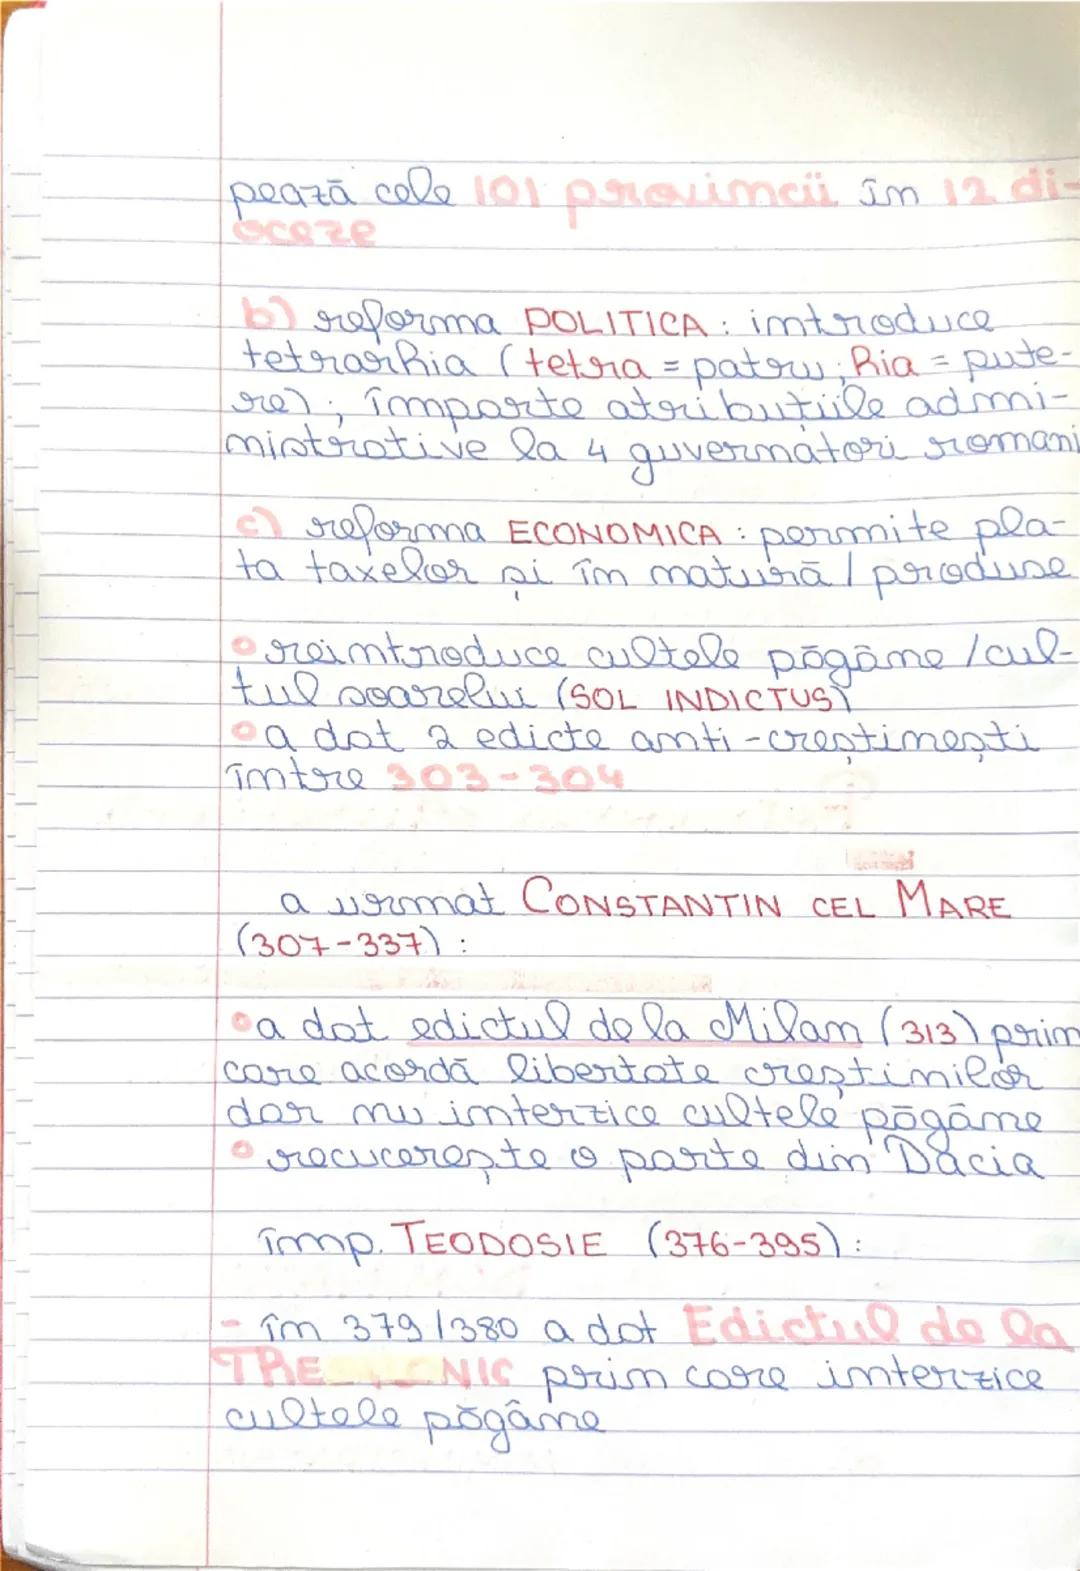 pează cele 101 provincii în 12 di-
oceze
b) reforma POLITICA : introduce
tetrarhia (tetra = patru; hia = pute-
re); împarte atribuțiile admi-
nistrative la 4 guvernatori romani
c) reforma ECONOMICA : permite pla-
ta taxelor și în natură / produse
reintroduce cultele păgâne / cul-
tul soarelui (SOL INDICTUS)
a dat 2 edicte anti-creștinești
între 303-304
a urmat CONSTANTIN CEL MARE
(307-337) :
a dat edictul de la Milan (313) prin
care acordă libertate creștinilor
dar nu interzice cultele păgâne
recucerește o parte din Dacia
împ. TEODOSIE (376-395) :
- în 379/380 a dat Edictul de la
prin care interzice
cultele păgâne